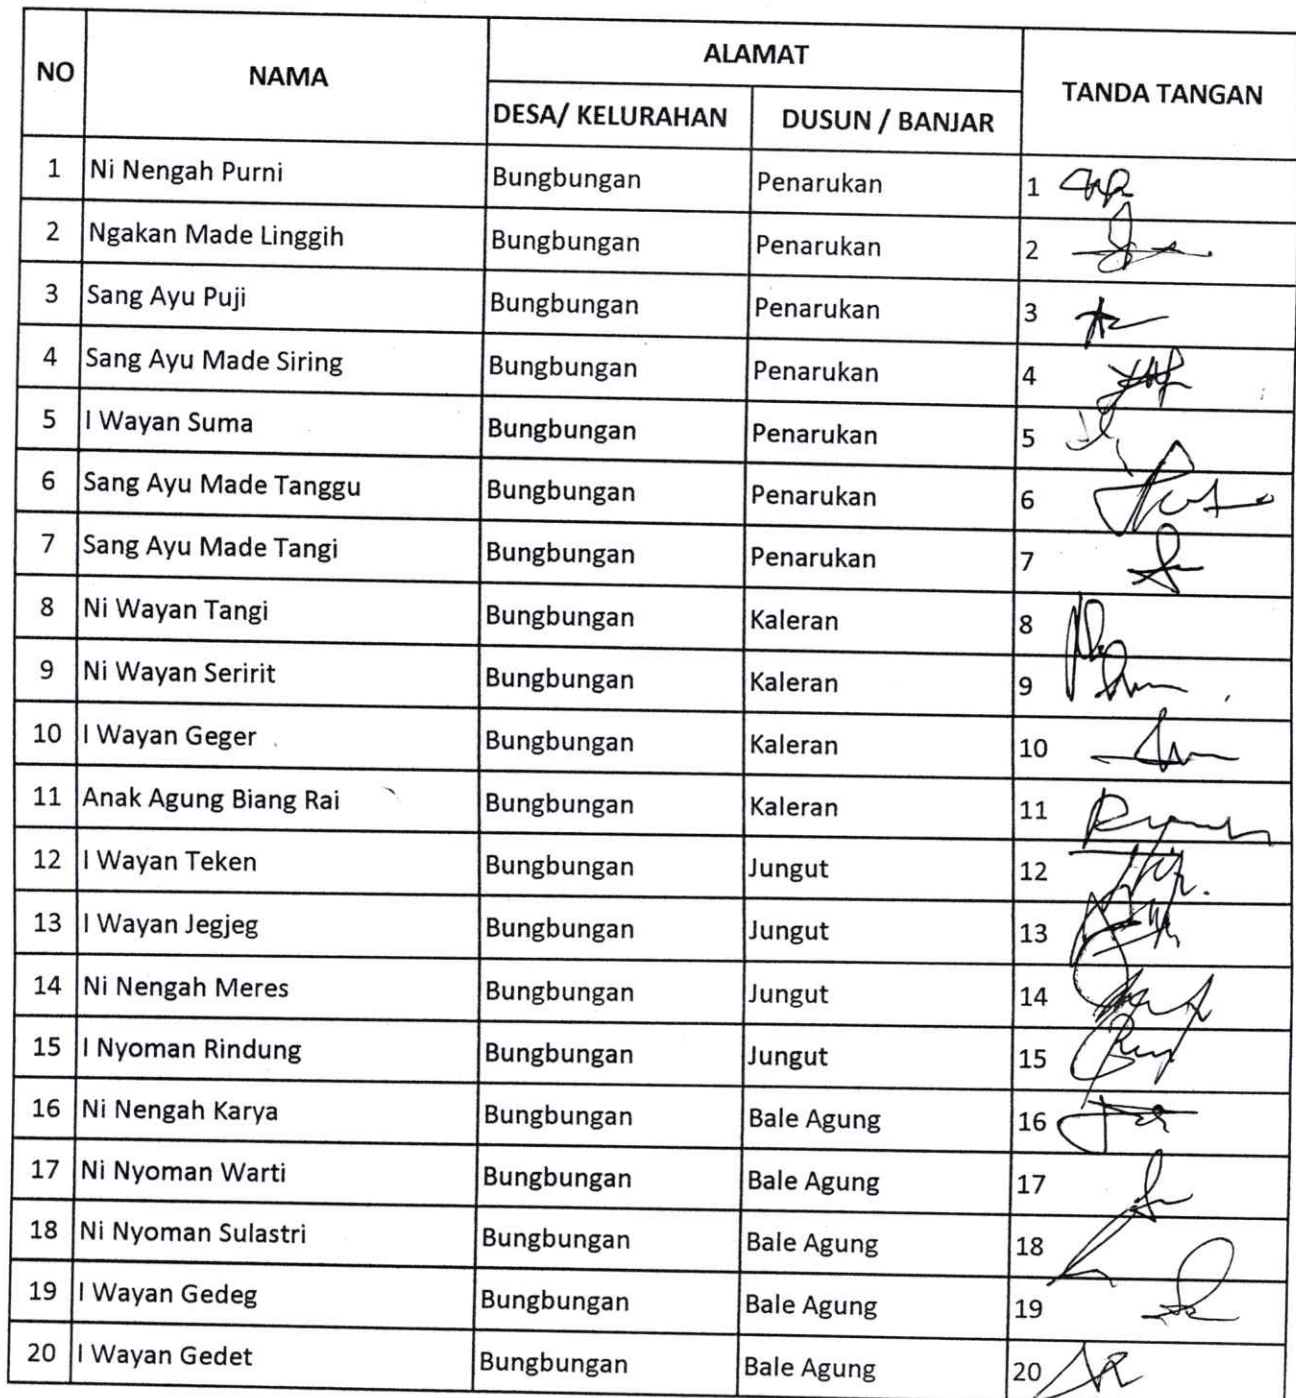 NO NAMA ALAMAT TANDA TANGAN
DESA/ KELURAHAN DUSUN / BANJAR
1 Ni Nengah Purni Bungbungan Penarukan 1
2 Ngakan Made Linggih Bungbungan Penarukan 2
3 Sang Ayu Puji Bungbungan Penarukan 3
4 Sang Ayu Made Siring Bungbungan Penarukan 4
5 I Wayan Suma Bungbungan Penarukan 5
6 Sang Ayu Made Tanggu Bungbungan Penarukan 6
7 Sang Ayu Made Tangi Bungbungan Penarukan 7
8 Ni Wayan Tangi Bungbungan Kaleran 8
9 Ni Wayan Seririt Bungbungan Kaleran 9
10 I Wayan Geger Bungbungan Kaleran 10
11 Anak Agung Biang Rai Bungbungan Kaleran 11
12 I Wayan Teken Bungbungan Jungut 12
13 I Wayan Jegjeg Bungbungan Jungut 13
14 Ni Nengah Meres Bungbungan Jungut 14
15 I Nyoman Rindung Bungbungan Jungut 15
16 Ni Nengah Karya Bungbungan Bale Agung 16
17 Ni Nyoman Warti Bungbungan Bale Agung 17
18 Ni Nyoman Sulastri Bungbungan Bale Agung 18
19 I Wayan Gedeg Bungbungan Bale Agung 19
20 I Wayan Gedet Bungbungan Bale Agung 20